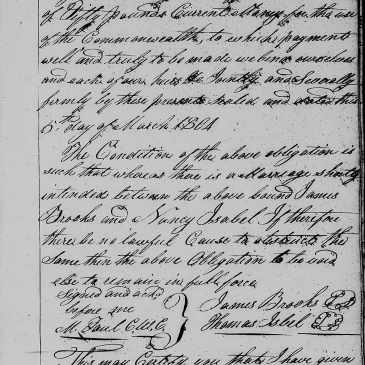 of Fifty pounds Current Money for the use
of the Commonwealth, to which payment
well and truly to be made we bind ourselves
and each of our heirs &c Jointly and Severally
firmly by these presents sealed and dated this
5th day of March 1804
The Condition of the above obligation is
such that whereas there is a Marriage shortly
intended between the above bound James
Brooks and Nancy Isabel If therefore
there be no lawful Cause to obstruct the
Same then the above Obligation to be void
else to remain in full force
Signed and ackd
before me
M. Paul C.W.C.
James Brooks
Thomas Isbel
This may Certify you that I have given